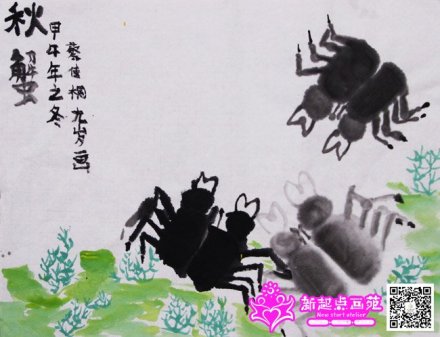 秋蟹
甲午年之冬
蔡佳桐九岁画
新起点画苑
New start atelier